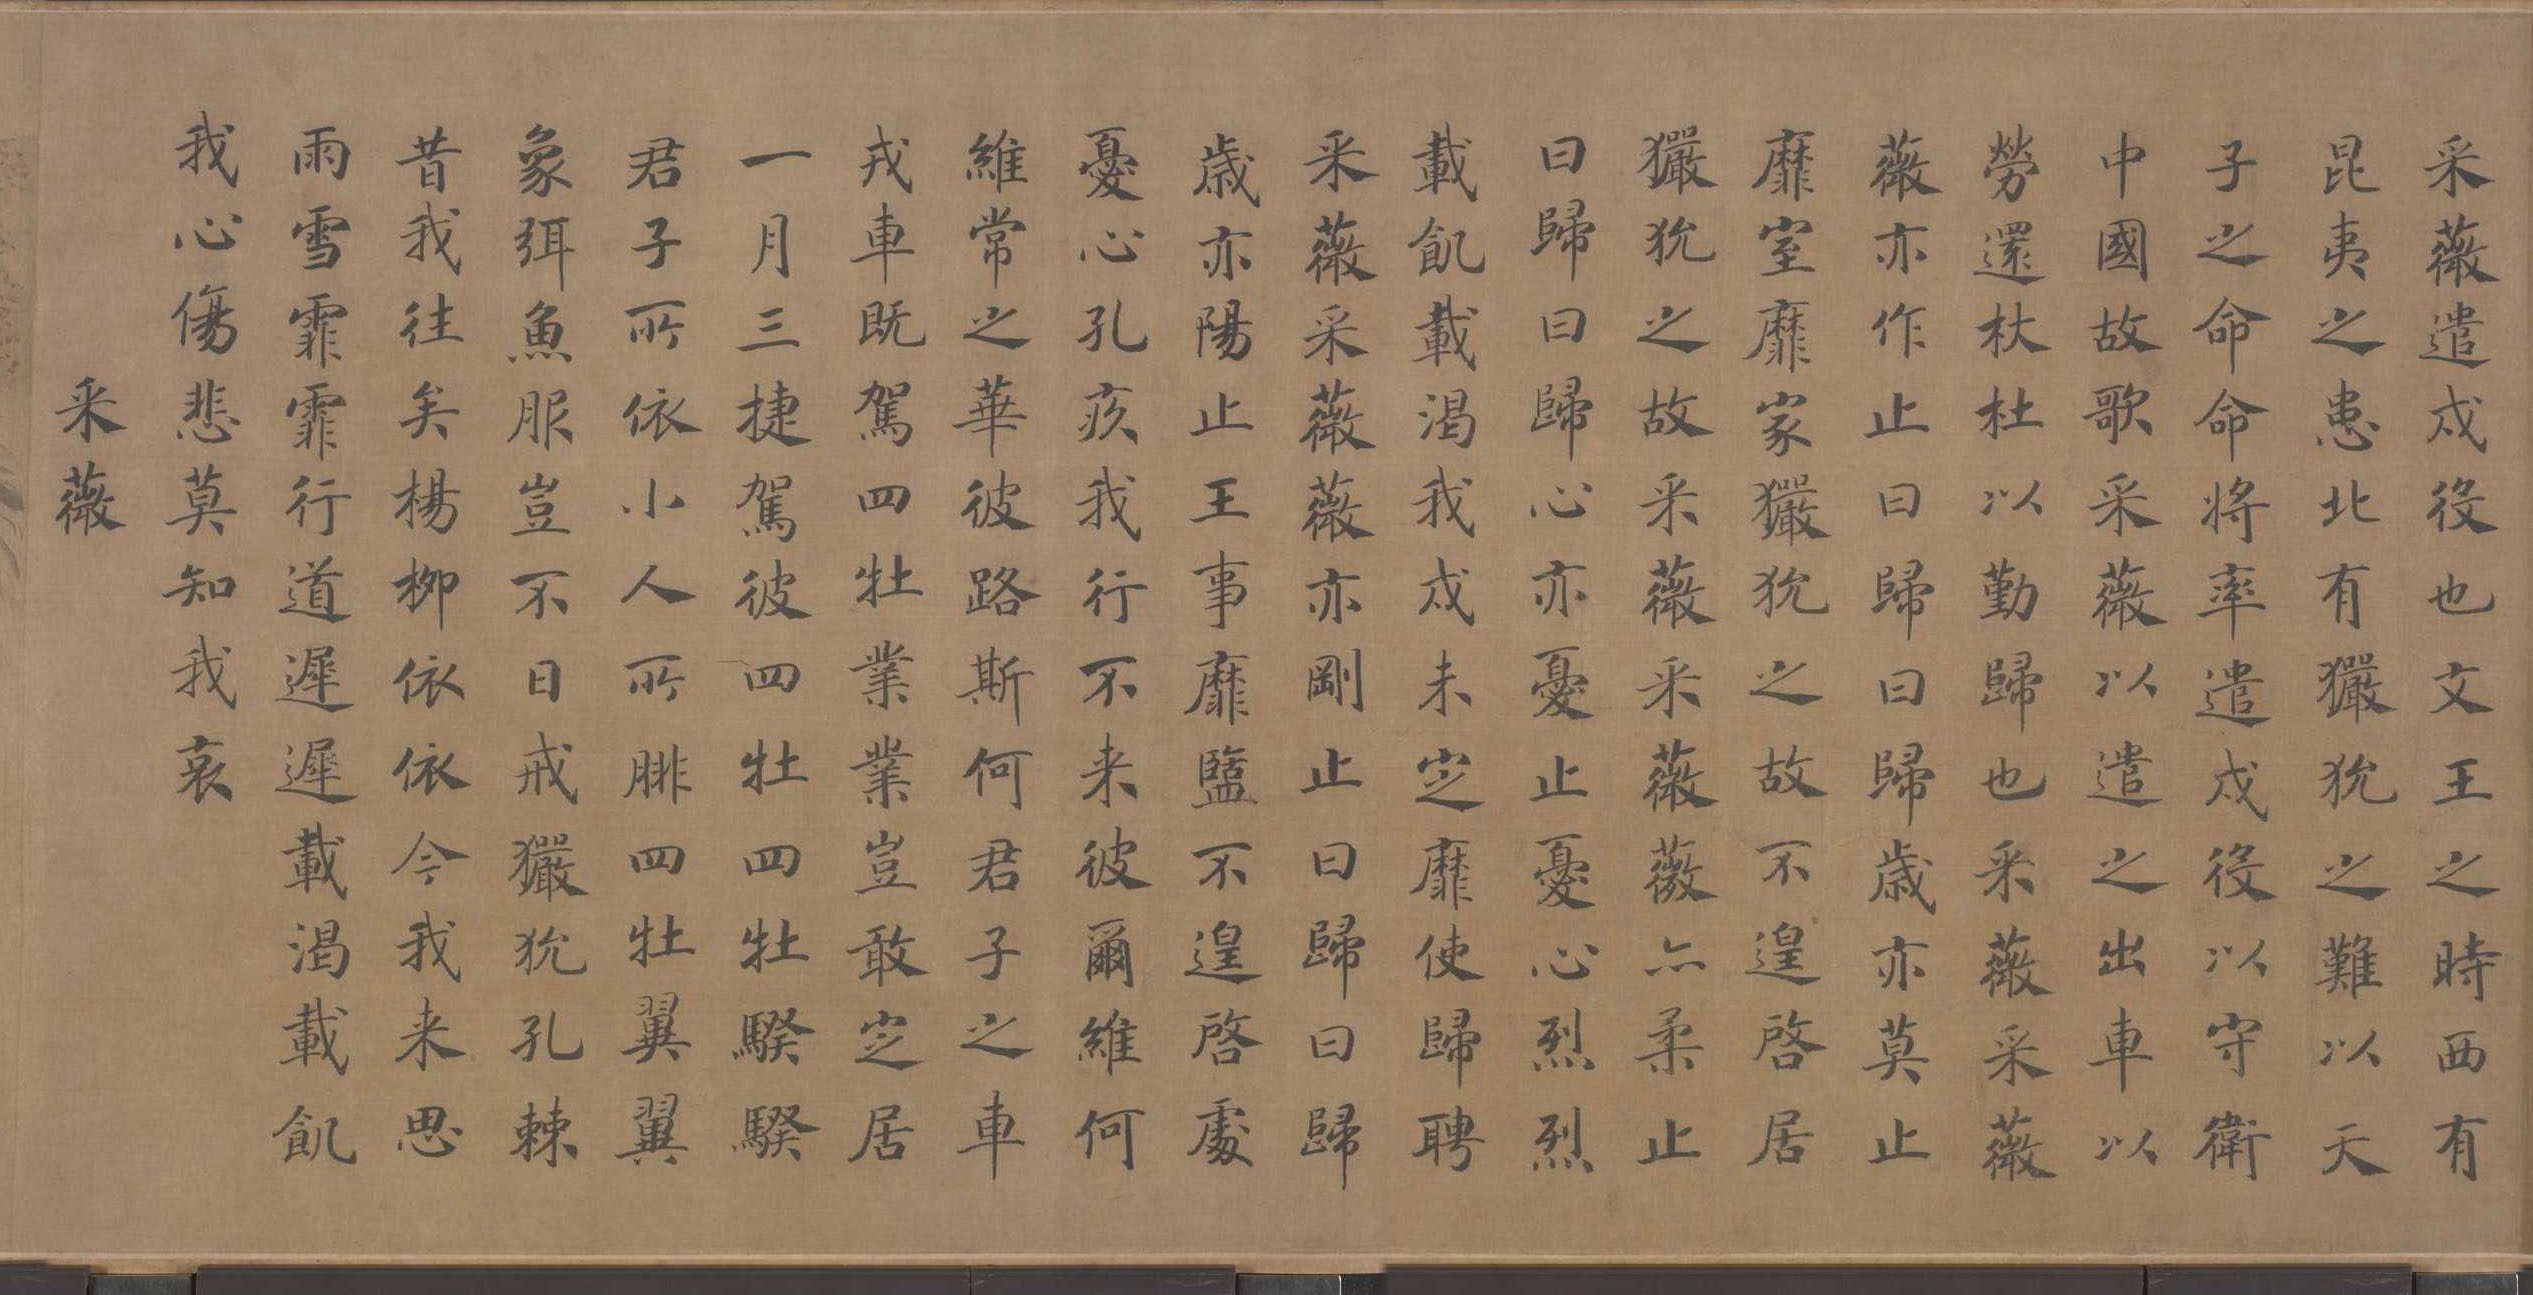 采薇遣戍役也文王之時西有
昆夷之患北有玁狁之難以天
子之命命將率遣戍役以守衛
中國故歌采薇以遣之出車以
勞還杕杜以勤歸也采薇采薇
薇亦作止曰歸曰歸歲亦莫止
靡室靡家玁狁之故不遑啓居
玁狁之故采薇采薇薇亦柔止
曰歸曰歸心亦憂止憂心烈烈
載飢載渴我戍未定靡使歸聘
采薇采薇薇亦剛止曰歸曰歸
歲亦陽止王事靡盬不遑啓處
憂心孔疚我行不来彼爾維何
維常之華彼路斯何君子之車
戎車既駕四牡業業豈敢定居
一月三捷駕彼四牡四牡騤騤
君子所依小人所腓四牡翼翼
象弭魚服豈不日戒玁狁孔棘
昔我往矣楊栁依依今我来思
雨雪霏霏行道遲遲載渴載飢
我心傷悲莫知我哀
采薇